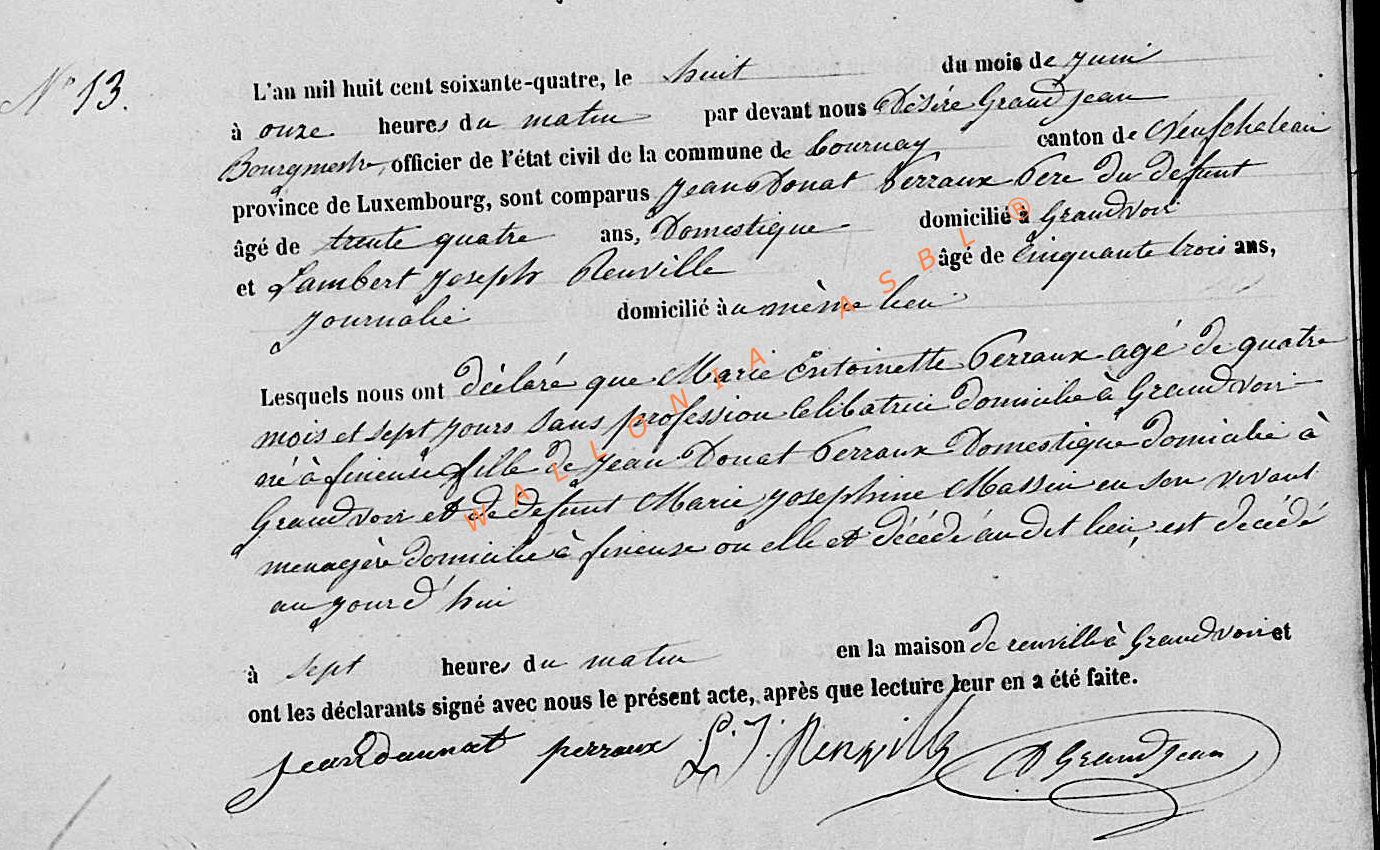 N° 13.
L'an mil huit cent soixante-quatre, le huit du mois de juin
à onze heures du matin par devant nous Désiré Grandjean
Bourgmestre, officier de l'état civil de la commune de Tournay canton de Neufchateau
province de Luxembourg, sont comparus Jean Donat Perraux Pere du defunt
âgé de trente quatre ans, Domestique domicilié à Grandvoir
et Lambert Joseph Renville âgé de Cinquante trois ans,
Journalié domicilié àu même lieu
Lesquels nous ont déclaré que Marie Entoinette Perraux agé de quatre
mois et sept jours sans profession Celibatrice domicilié à Grandvoir
né à fineuse fille de Jean Donat Perraux Domestique domicilié à
Grandvoir et de defunt Marie Josephine Massen en son vivant
menagère domicilié à fineuse où elle et décédé au dit lieu, est decédé
au jourd'hui
à sept heures du matin en la maison de renville à Grandvoir et
ont les déclarants signé avec nous le présent acte, après que lecture leur en a été faite.
jean donnat perraux L. J. Renville D Grandjean
WALLONIA ASBL ®